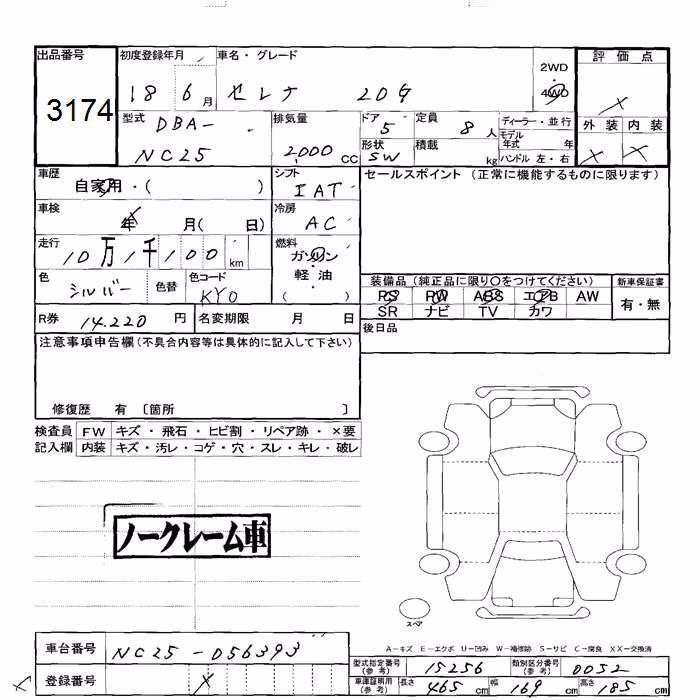 出品番号 初度登録年月 車名・グレード 2WD 評価点
3174 18 6月 セレナ 20G 4WD ×
型式 DBA- 排気量 ドア 5 定員 8人 ディーラー・並行 外装 内装
NC25 2,000 CC 形状 SW 積載 kg モデル年式 年 × ×
ハンドル 左・右
車歴 自家用・( ) シフト IAT セールスポイント (正常に機能するものに限ります)
車検 × 年 月( 日) 冷房 AC
走行 10万1千100 km 燃料 ガソリン
色 シルバー 色替 色コード KY0 軽・油 ( )
装備品 (純正品に限り○をつけてください) 新車保証書
PS PW ABS エアB AW 有・無
SR ナビ TV カワ
R券 14.220 円 名変期限 月 日 後日品
注意事項申告欄(不具合内容等は具体的に記入して下さい)
修復歴 有 〔箇所 〕
検査員 FW キズ・飛石・ヒビ割・リペア跡・×要
記入欄 内装 キズ・汚レ・コゲ・穴・スレ・キレ・破レ
ノークレーム車
スペア
A-キズ E-エクボ U-凹み W-補修跡 S-サビ C-腐食 XX-交換済
車台番号 NC25-056393 型式指定番号 (参考) 15256 類別区分番号 (参考) 0052
× 登録番号 × 車庫証明用 (参考) 長さ 465 cm 幅 169 cm 高さ 185 cm